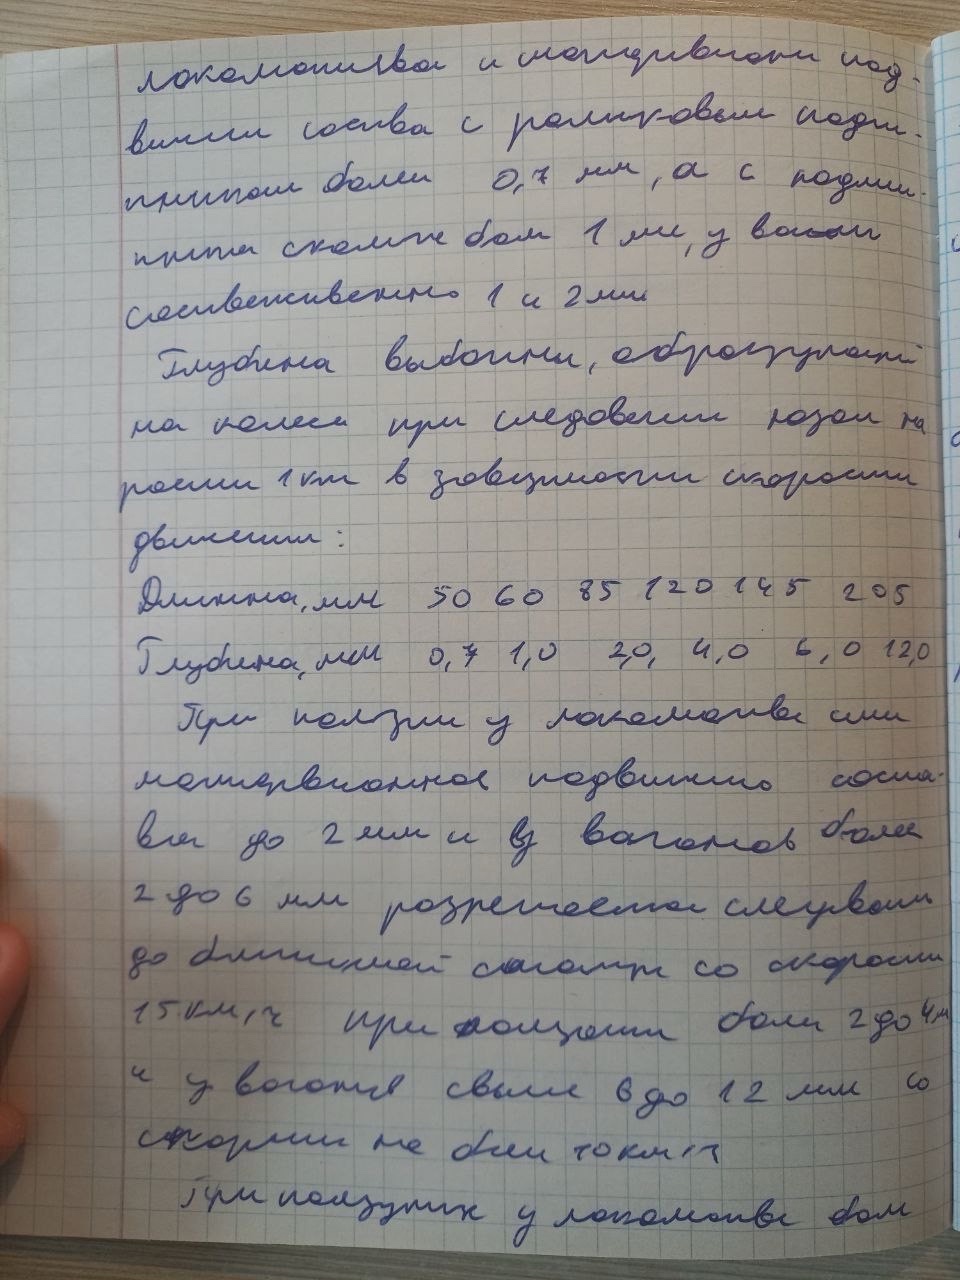 локомотива и моторвагон под-
вижн соства с роликовым подш-
пником более 0,7 мм, а с подши-
пнта скольже боле 1 мм, у вагон
соответственно 1 и 2 мм
Глубина выбоины,
на колеса при следовании юзом на
росии 1 км в зависимости скорости
движения:
Длинна, мм 50 60 85 120 145 205
Глубина, мм 0,7 1,0 2,0, 4,0 6,0 12,0
При ползун у локомотива или
моторвагонное подвижно соста-
ва до 2 мм и у вагонов более
2 до 6 мм разрешается следовать
до ближшей станци со скорости
15 км/ч при ползуни боле 2 до 4 м
и у вагона свыше 6 до 12 мм со
скорости не боле 10 км/ч
При ползунах у локомотива боле